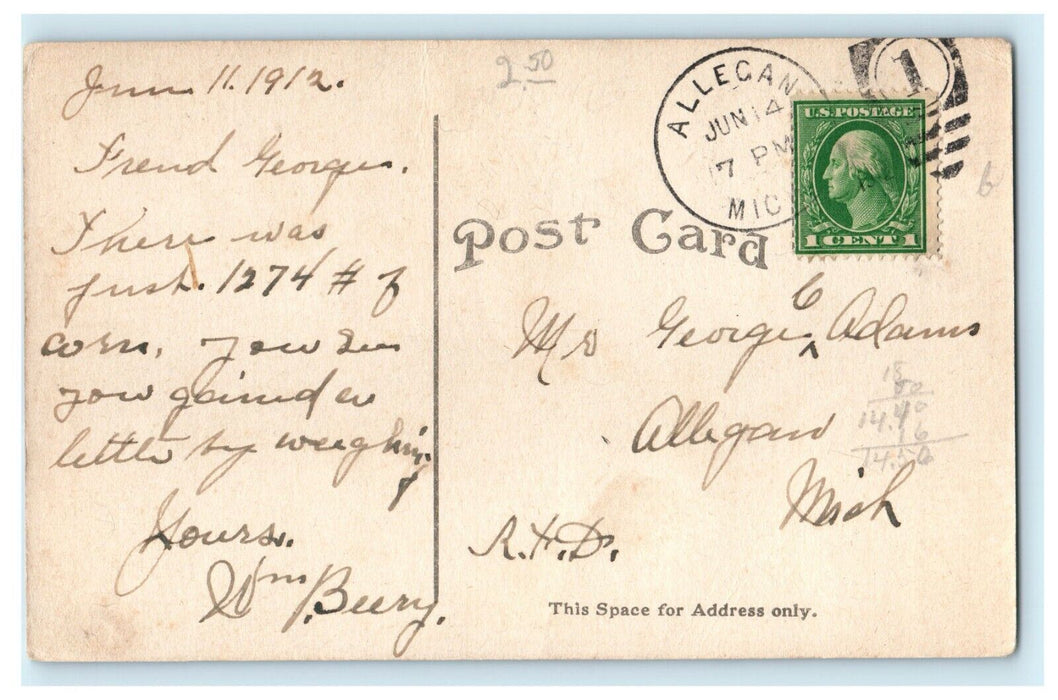 Jun 11. 1912.
Frend George.
There was
just. 1274 # of
corn. you see
you gained a
little by weighing
Yours.
Wm Beery.
2.50
ALLEGAN
JUN 14
7 PM
MICH
1
U.S. POSTAGE
1 CENT 1
6
Post Card
Mr George C Adams
Allegan
Mich
R.F.D.
14.40
16
This Space for Address only.